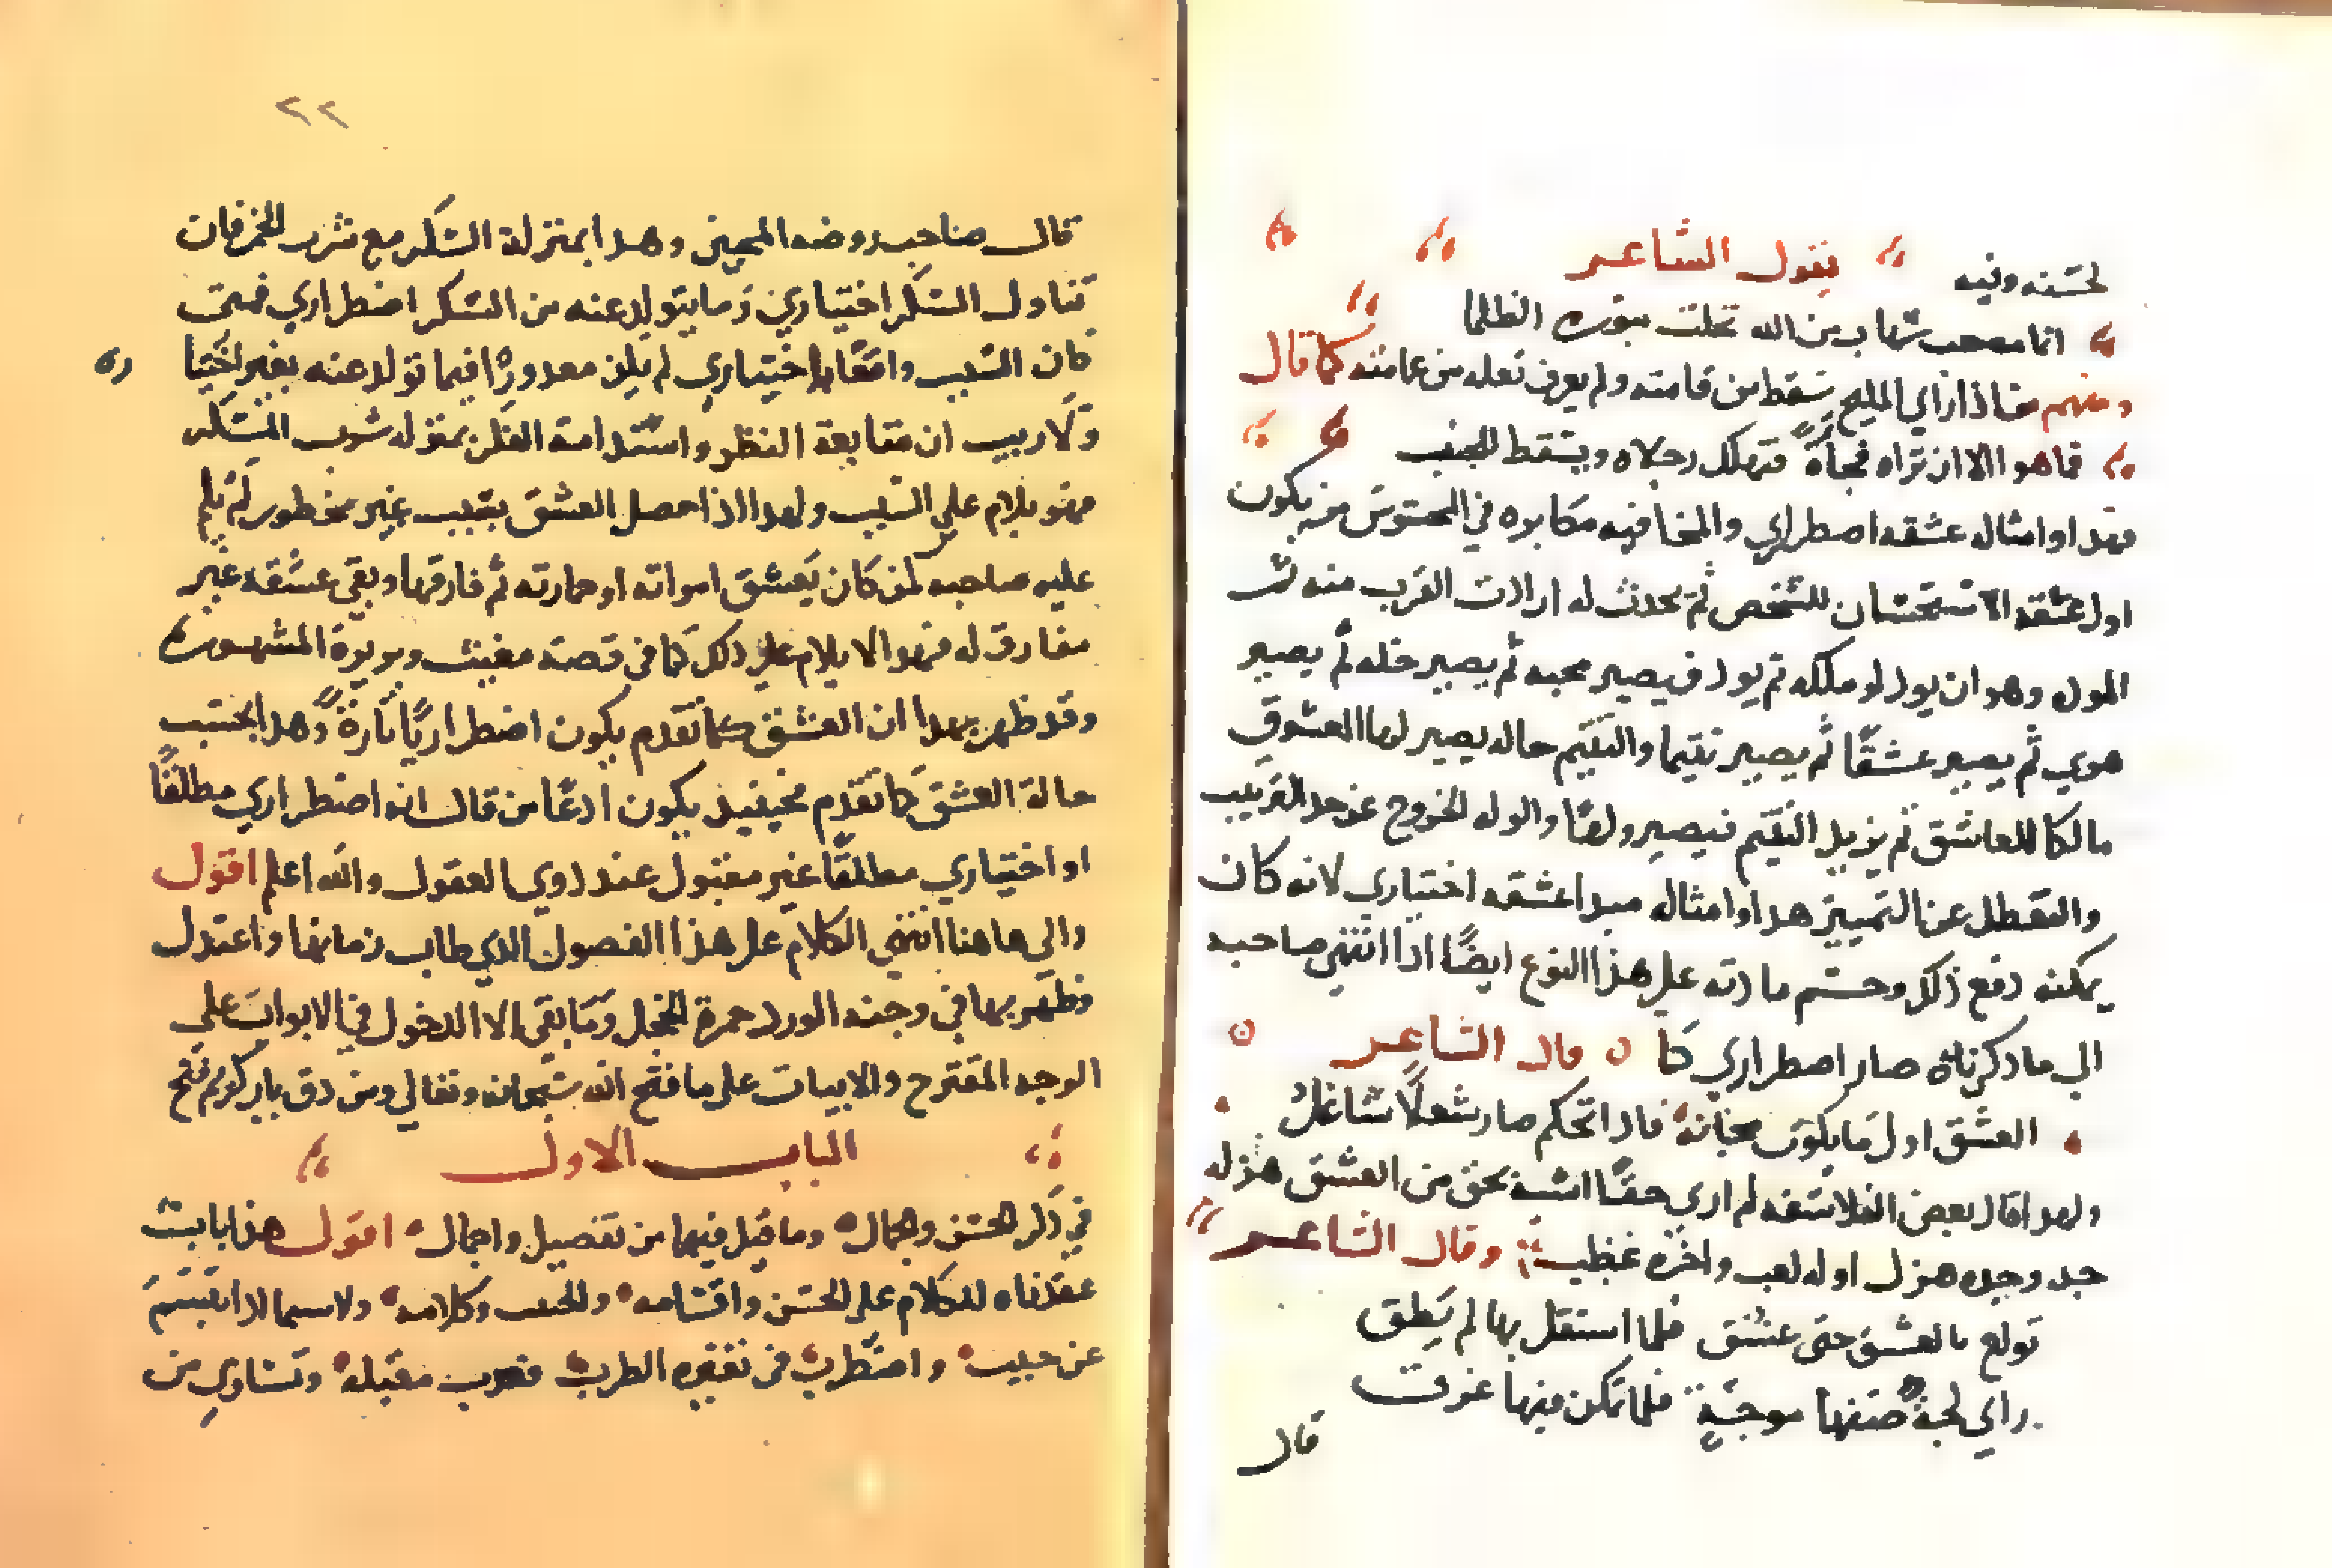 لحسنه وفيه يقول الشاعر
انما مصعب شهاب من الله تجلت بنوره الظلما
ومنهم من اذا راي المليح سقط من قامته ولم يعرف نعله من عمامته كما قال
فما هو الا ان تراه فجأة فتهلك رجلاه ويسقط للجنب
فهدا وامثاله عشقه اصطراري والمخا فيه مكابره في المحسوس فربه يكون
اول عشقه الاستحسان للشخص ثم يحدث له ارادت القرب منه ثم
المول وهو ان يود لو ملكه ثم يود فيصير محبه ثم يصير خله ثم يصير
هوي ثم يصير عشقًا ثم يصير تتيما والتتيم حاله يصير لها المعشوق
مالكا للعاشق ثم يزيد التتيم فيصير ولهًا والوله الخروج عن حد الترتيب
والتعطل عن التمييز هدا وامثاله مبدا عشقه اختياري لانه كان
يمكنه دفع ذلك وحسم مادته على هذا النوع ايضًا اذا انتهي صاحبه
الي ما دكرناه صار اصطراري كما قال الشاعر
العشق اول ما يكون مجانة فاذا تحكم صار شغلًا شاغل
ولهدا قال بعض الفلاسفه لم اري حقًا اشبه بحق من العشق هزله
جد وجده هزل اوله لعب واخره عطب وقال الشاعر
تولع بالعشق حتى عشق فلما استقل بها لم يطق
راي لجة ظنها موجة فلما تمكن منها غرق
قال
٢٢
قال صاحب روضه المحبين وهدا بمنزلة السكر مع شرب الخمر فان
تناول السكر اختياري وما يتولد عنه من السكر اضطراري فمتى
كان السبب واقعًا باختياري لم يكن معدورًا فيما تولد عنه بغير اختيا
ره
ولا ريب ان متابعة النظر واستدامة الفكر بمنزله شرب المسكر
فهو يلام على السبب ولهدا اذا حصل العشق بسبب غير محظور لم يلم
عليه صاحبه لمن كان يعشق امراته او جارته ثم فارقها وبقى عشقه غير
مفارق له فهدا لا يلام على دلك كما فى قصة مغيث وبريرة المشهوره
وقد ظهر بهدا ان العشق كما تقدم يكون اضطراريًا تارة وهدا بحسب
حالة العشق كما تقدم فحينيد يكون ادعًا من قال انه اضطراري مطلقًا
او اختياري مطلقًا غير مقبول عند دوي العقول والله اعلم اقول
والي هاهنا انتهي الكلام على هذا الفصول الدي طاب زمانها واعتدل
وظهر بها في وجنه الورد حمرة الخجل وما بقى الا الدخول في الابواب على
الوجه المقترح والابيات على ما فتح الله سبحانه وتعالي ومن دق باب كريم فتح
الباب الاول
في ذكر الحسن والجمال وما قيل فيهما من تفصيل واجمال اقول هذا باب
عقدناه للكلام على الحسن واقسامه والحب وكلامه ولاسيما اذا تبسم
عن حبيب واضطرب في ثغيره الطرب فعرب مقبله وتساوي من